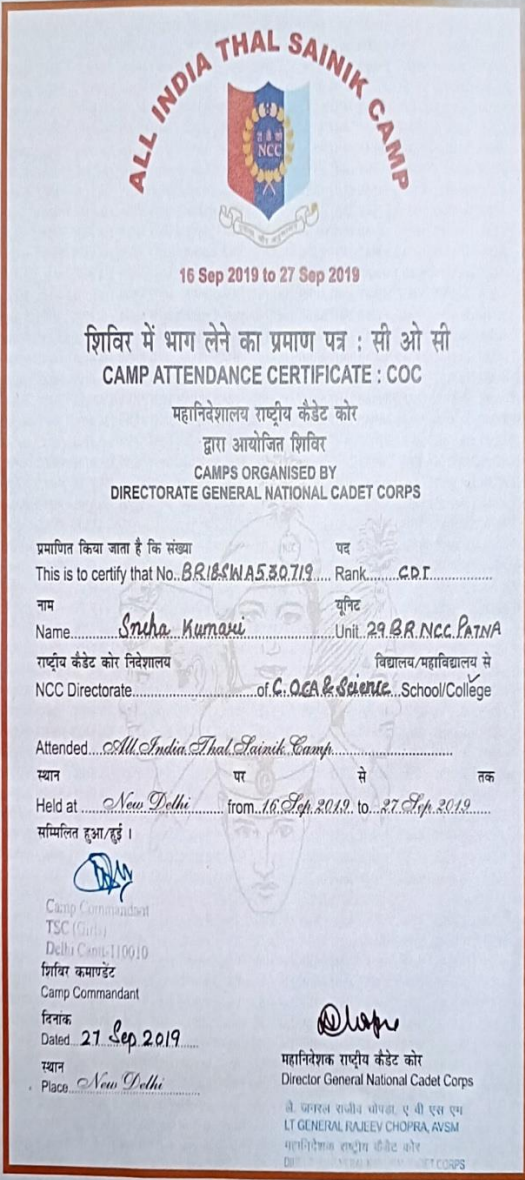 ALL INDIA THAL SAINIK CAMP
NCC
16 Sep 2019 to 27 Sep 2019
शिविर में भाग लेने का प्रमाण पत्र : सी ओ सी
CAMP ATTENDANCE CERTIFICATE : COC
महानिदेशालय राष्ट्रीय कैडेट कोर
द्वारा आयोजित शिविर
CAMPS ORGANISED BY
DIRECTORATE GENERAL NATIONAL CADET CORPS
प्रमाणित किया जाता है कि संख्या पद
This is to certify that No..BR18SWA530719..... Rank........CDT................
नाम यूनिट
Name............Sneha Kumari......................Unit..29 BR NCC PATNA
राष्ट्रीय कैडेट कोर निदेशालय विद्यालय/महाविद्यालय से
NCC Directorate...............................of C.OCA & Science..School/College
Attended....All India Thal Sainik Camp..............................
स्थान पर से तक
Held at .......New Delhi........ from..16 Sep 2019.. to...27 Sep 2019.....
सम्मिलित हुआ/हुई ।
Camp Commandant
TSC (Girls)
Delhi Cantt-110010
शिविर कमाण्डेंट
Camp Commandant
दिनांक
Dated...27 Sep 2019.....
स्थान
Place...New Delhi........
महानिदेशक राष्ट्रीय कैडेट कोर
Director General National Cadet Corps
ले. जनरल राजीव चोपड़ा, ए वी एस एम
LT GENERAL RAJEEV CHOPRA, AVSM
महानिदेशक राष्ट्रीय कैडेट कोर
CORPS